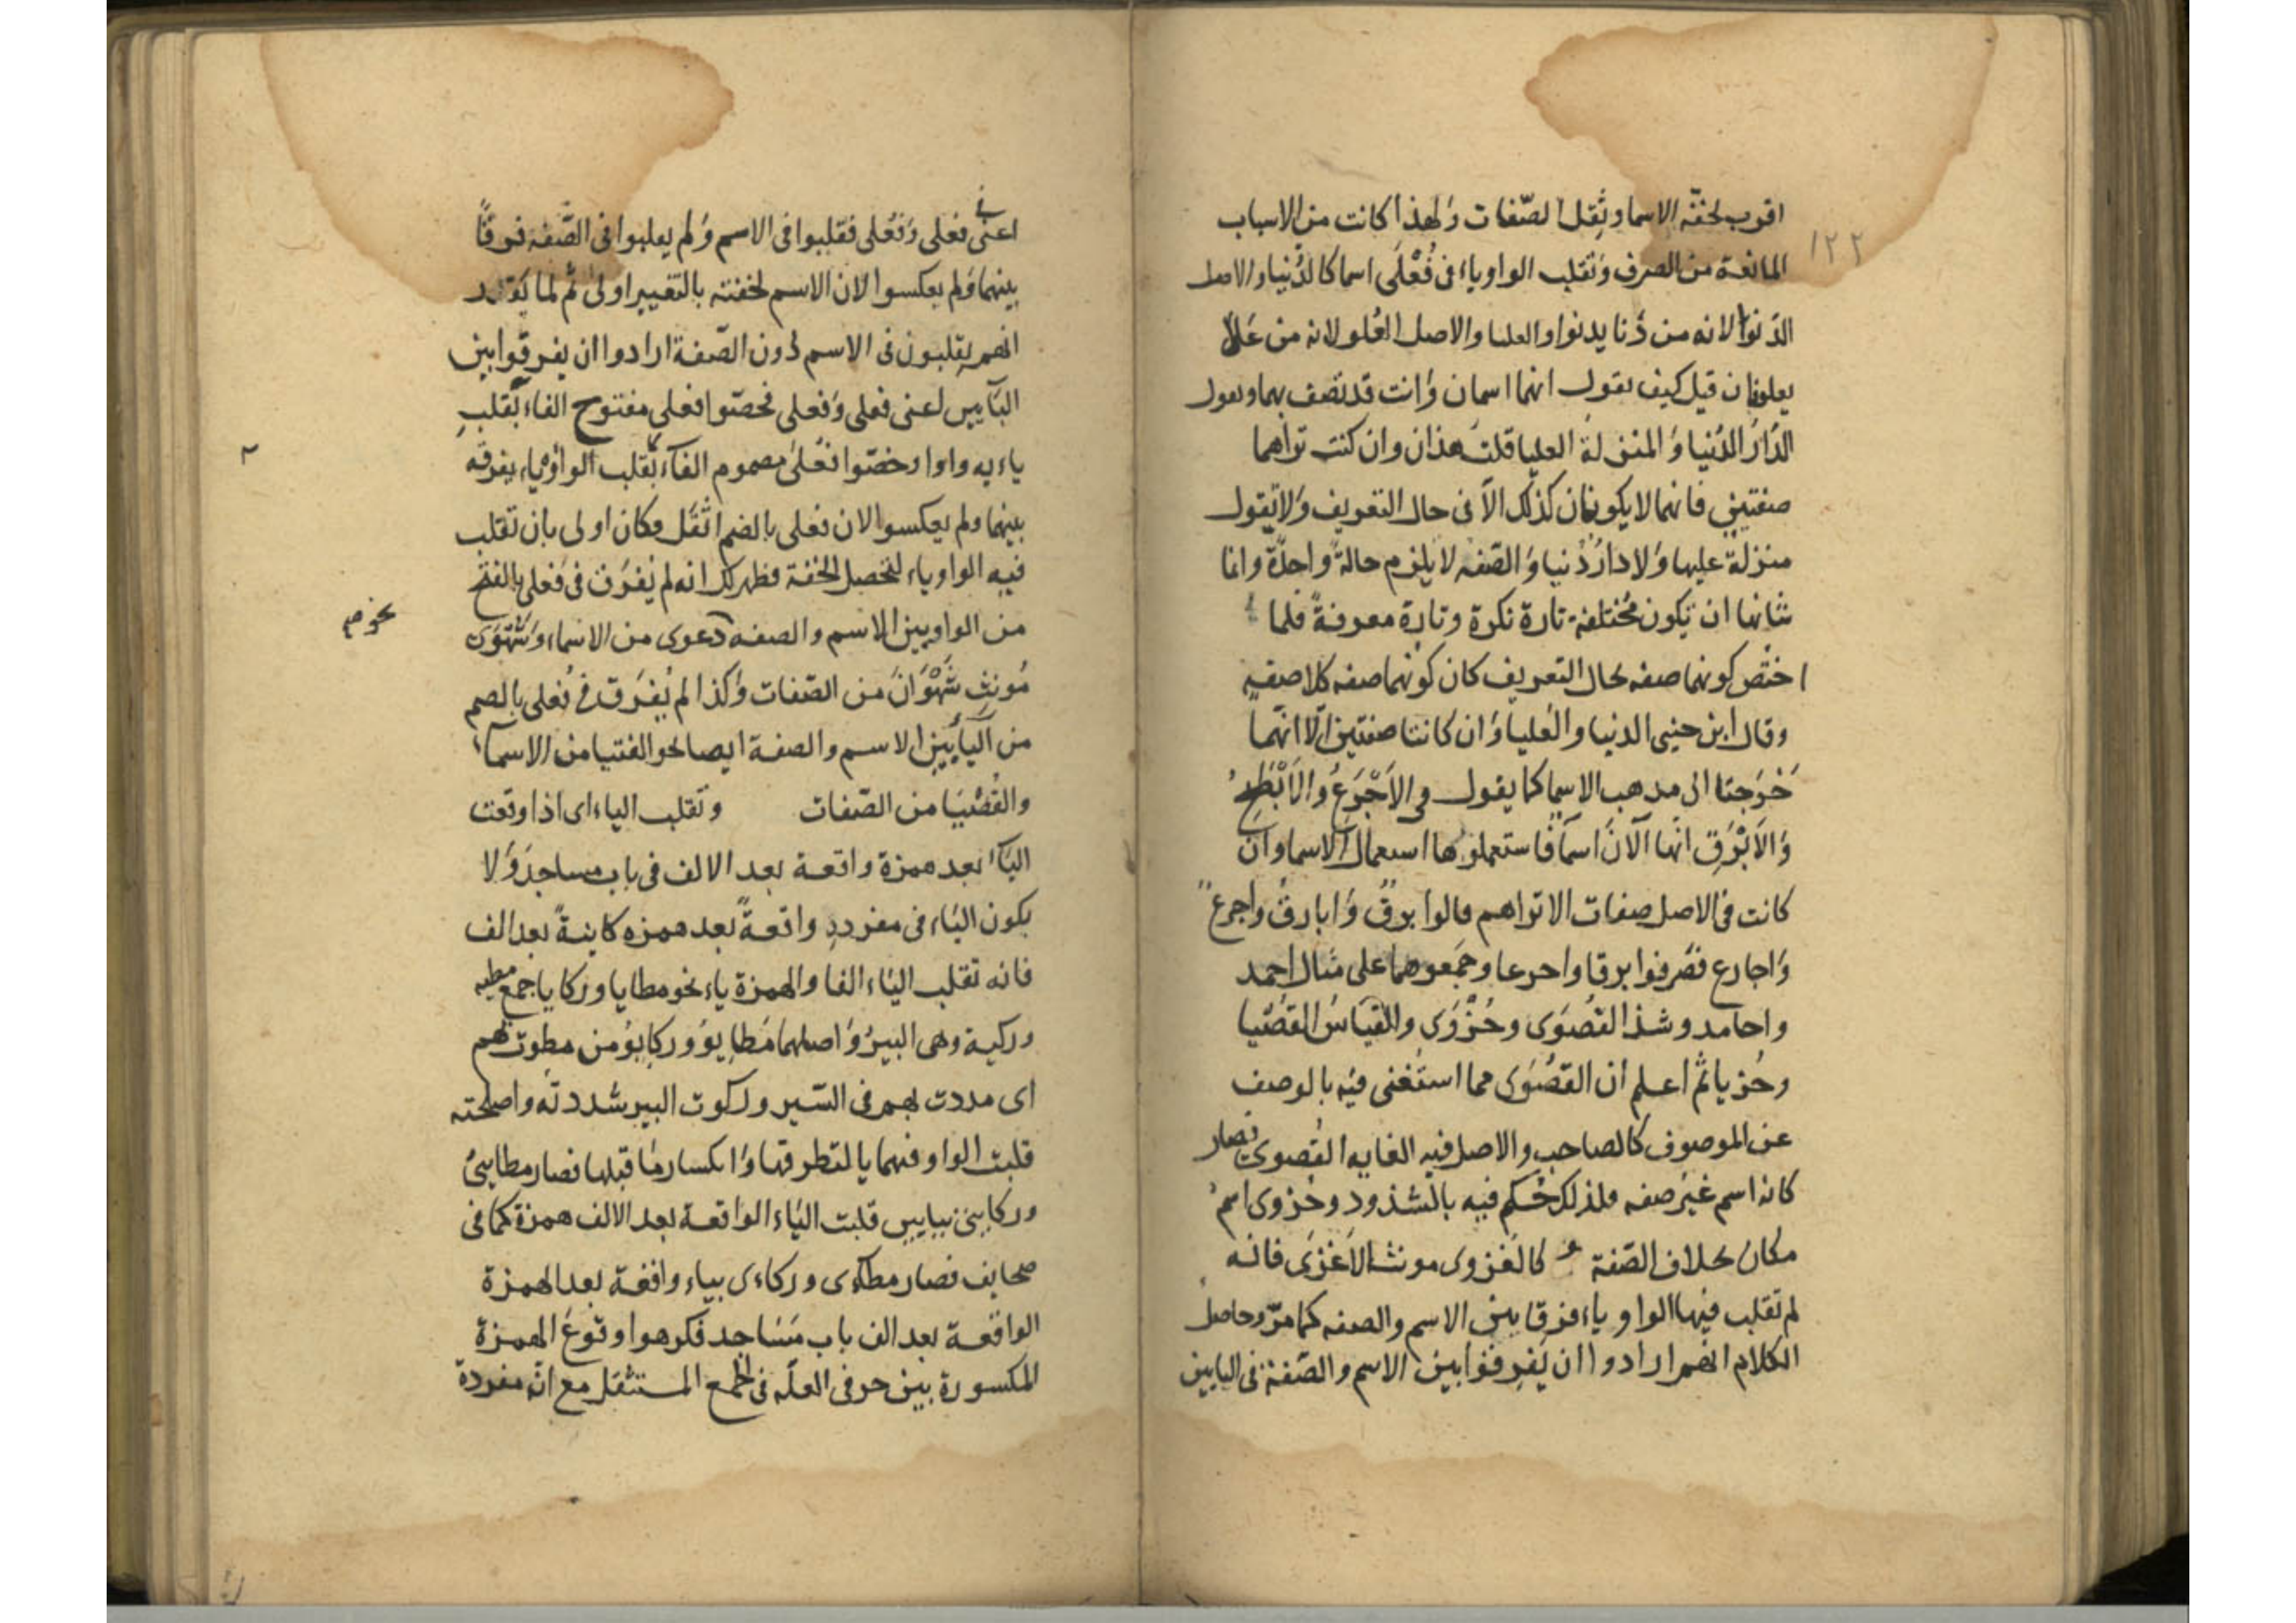 اقرب لخفّة الاسما وثقل الصّفات ولهذا كانت من الاسباب
١٢٢
المانعة من الصرف وتقلب الواو ياء فى فُعْلَى اسما كالدُّنيا والاصل
الدّنوا لانه من دنا يدنوا والعليا والاصل العُلو لانه من علا
يعلو فان قيل كيف تقول انهما اسمان وانت قد تصف بهما وتقول
الدّارُ الدُنيا والمنزلة العليا قلت هذان وان كنت تراهما
صفتين فانهما لا يكونان كذلك الاّ فى حال التعريف ولا تقول
منزلة عليا ولا دارُ دُنيا والصّفه لا يلزم حالةً واحدةً وانما
شانها ان تكون مختلفة تارة نكرة وتارة معرفةً فلما
اختصّ كونهما صفه بحال التعريف كان كونهما صفه كلا صفهٍ
وقال ابن جنيى الدنيا والعُليا وَان كانتا صفتين الّا انّهما
خَرَجتا الى مذهب الاسما كما يقول فى الاَجْرَعُ والاَبْطَحُ
وَالاَبْرَقِ انها الآنَ اسما فاستعملوها استعمال الاسما وان
كانت فى الاصل صفات الا تراهم قالوا برقٌ وَابارقُ واجرعٌ
وَاجارع فصَرفوا برقا واجرعا وجَمعوهما على مثال احمد
واحامد وشذ القُصوَى وحُزْوَى والقياسُ القُصْيا
وحُزيا ثم اعلم ان القُصْوَى مما استُغنى فيه بالوصف
عن الموصوف كالصاحب والاصل فيه الغايه القُصوى فصار
كانه اسم غيَر صفه فلذلك حُكم فيه بالشذود وحُزوى اسم
مكان بخلاف الصّفة كالغزوى مونث الاَغْزَى فانه
لم تقلب فيها الواو ياء فرقا بين الاسم والصفه كما مرّ وحاصل
الكلام انهم ارادوا ان يَفرقوا بين الاسم والصّفة فى البابين
اعنى فى فعلى وَفُعلى فقلبوا فى الاسم وَلم يقلبوا فى الصّفة فرقًا
بينهما وَلم يعكسوا لان الاسم لخفته بالتغيير اولى ثم لما
انهم يقلبون فى الاسم دون الصّفة ارادوا ان يفرقوا بين
البابين اعنى فعلى وَفعلى فخصّوا فعلى مفتوح الفاء بقلبِ
يايه واوا وخصّوا فعُلى مضموم الفاء بقلب الواو ياء يفرقه
بينهما ولم يعكسوا لان فعلى بالضم اثقل فكان اولى بان تقلب
فيه الواو ياء لتحصل الخفة فظهر لك انه لم يُفرَق فى فَعلى بالفتح
من الواو بين الاسم والصفه دعوى من الاسماء وَشَهْوَى
نحو
مُونثِ شَهْوَانَ من الصّفات وَكذا لم يُفرَق فى فُعلى بالضم
من اليَأيين الاسم والصفة ايضا نحو الفتيا من الاسماء
والقُصْيَا من الصّفات وتقلب الياء اى اذا وقعت
اليَاء بعد همزة واقعة بعد الالف فى باب مساجدَ وَلا
يكون اليَاء فى مفرده واقعةً بعد همزه كاينةً بعد الف
فانه تقلب اليَاء الفا والهمزة ياء نحو مطايا وركايا جمع مطيه
وركية وهى البيرُ وَاصلهما مَطايوُ وركايوُ من مطوت بهم
اى مددت بهم فى السّير وركوت البير شددته واصلحته
قلبت الواو فيهما يا لتطرفها وَانكسار مَا قبلها فصار مطايىُ
وركايىُ بيايين قلبت اليَاء الواقعة بعد الالف همزة كما فى
صحايف فصار مطاءى وركاءى بياء واقعة بعد الهمزة
الواقعة بعد الف باب مَسَاجد فكرهوا وقوعَ الهمزة
المكسورة بين حرفى العلّه فى الجمع المستثقل مع انّه مفردة